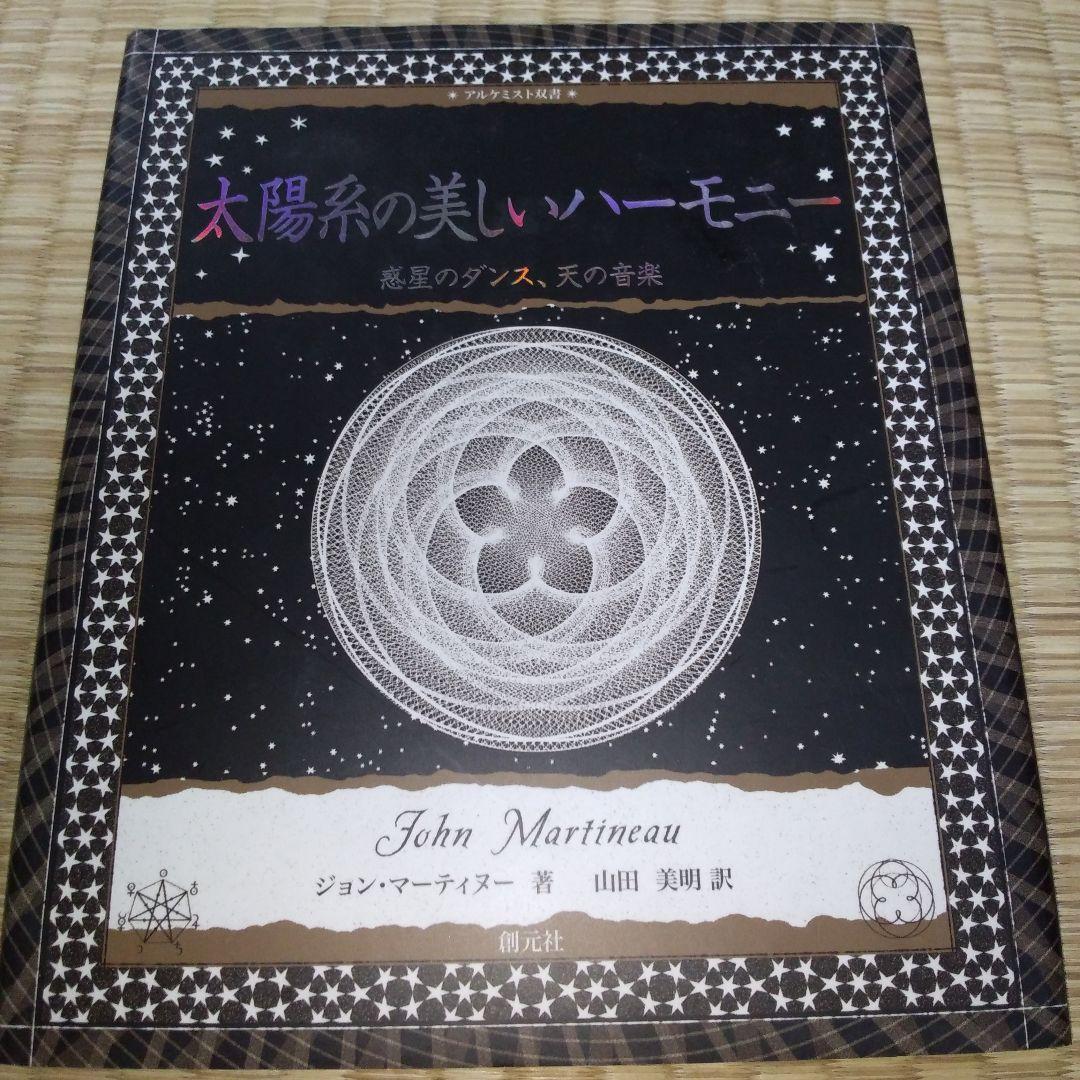 ＊アルケミスト双書＊
太陽系の美しいハーモニー
惑星のダンス、天の音楽
John Martineau
ジョン・マーティヌー 著 山田 美明 訳
創元社